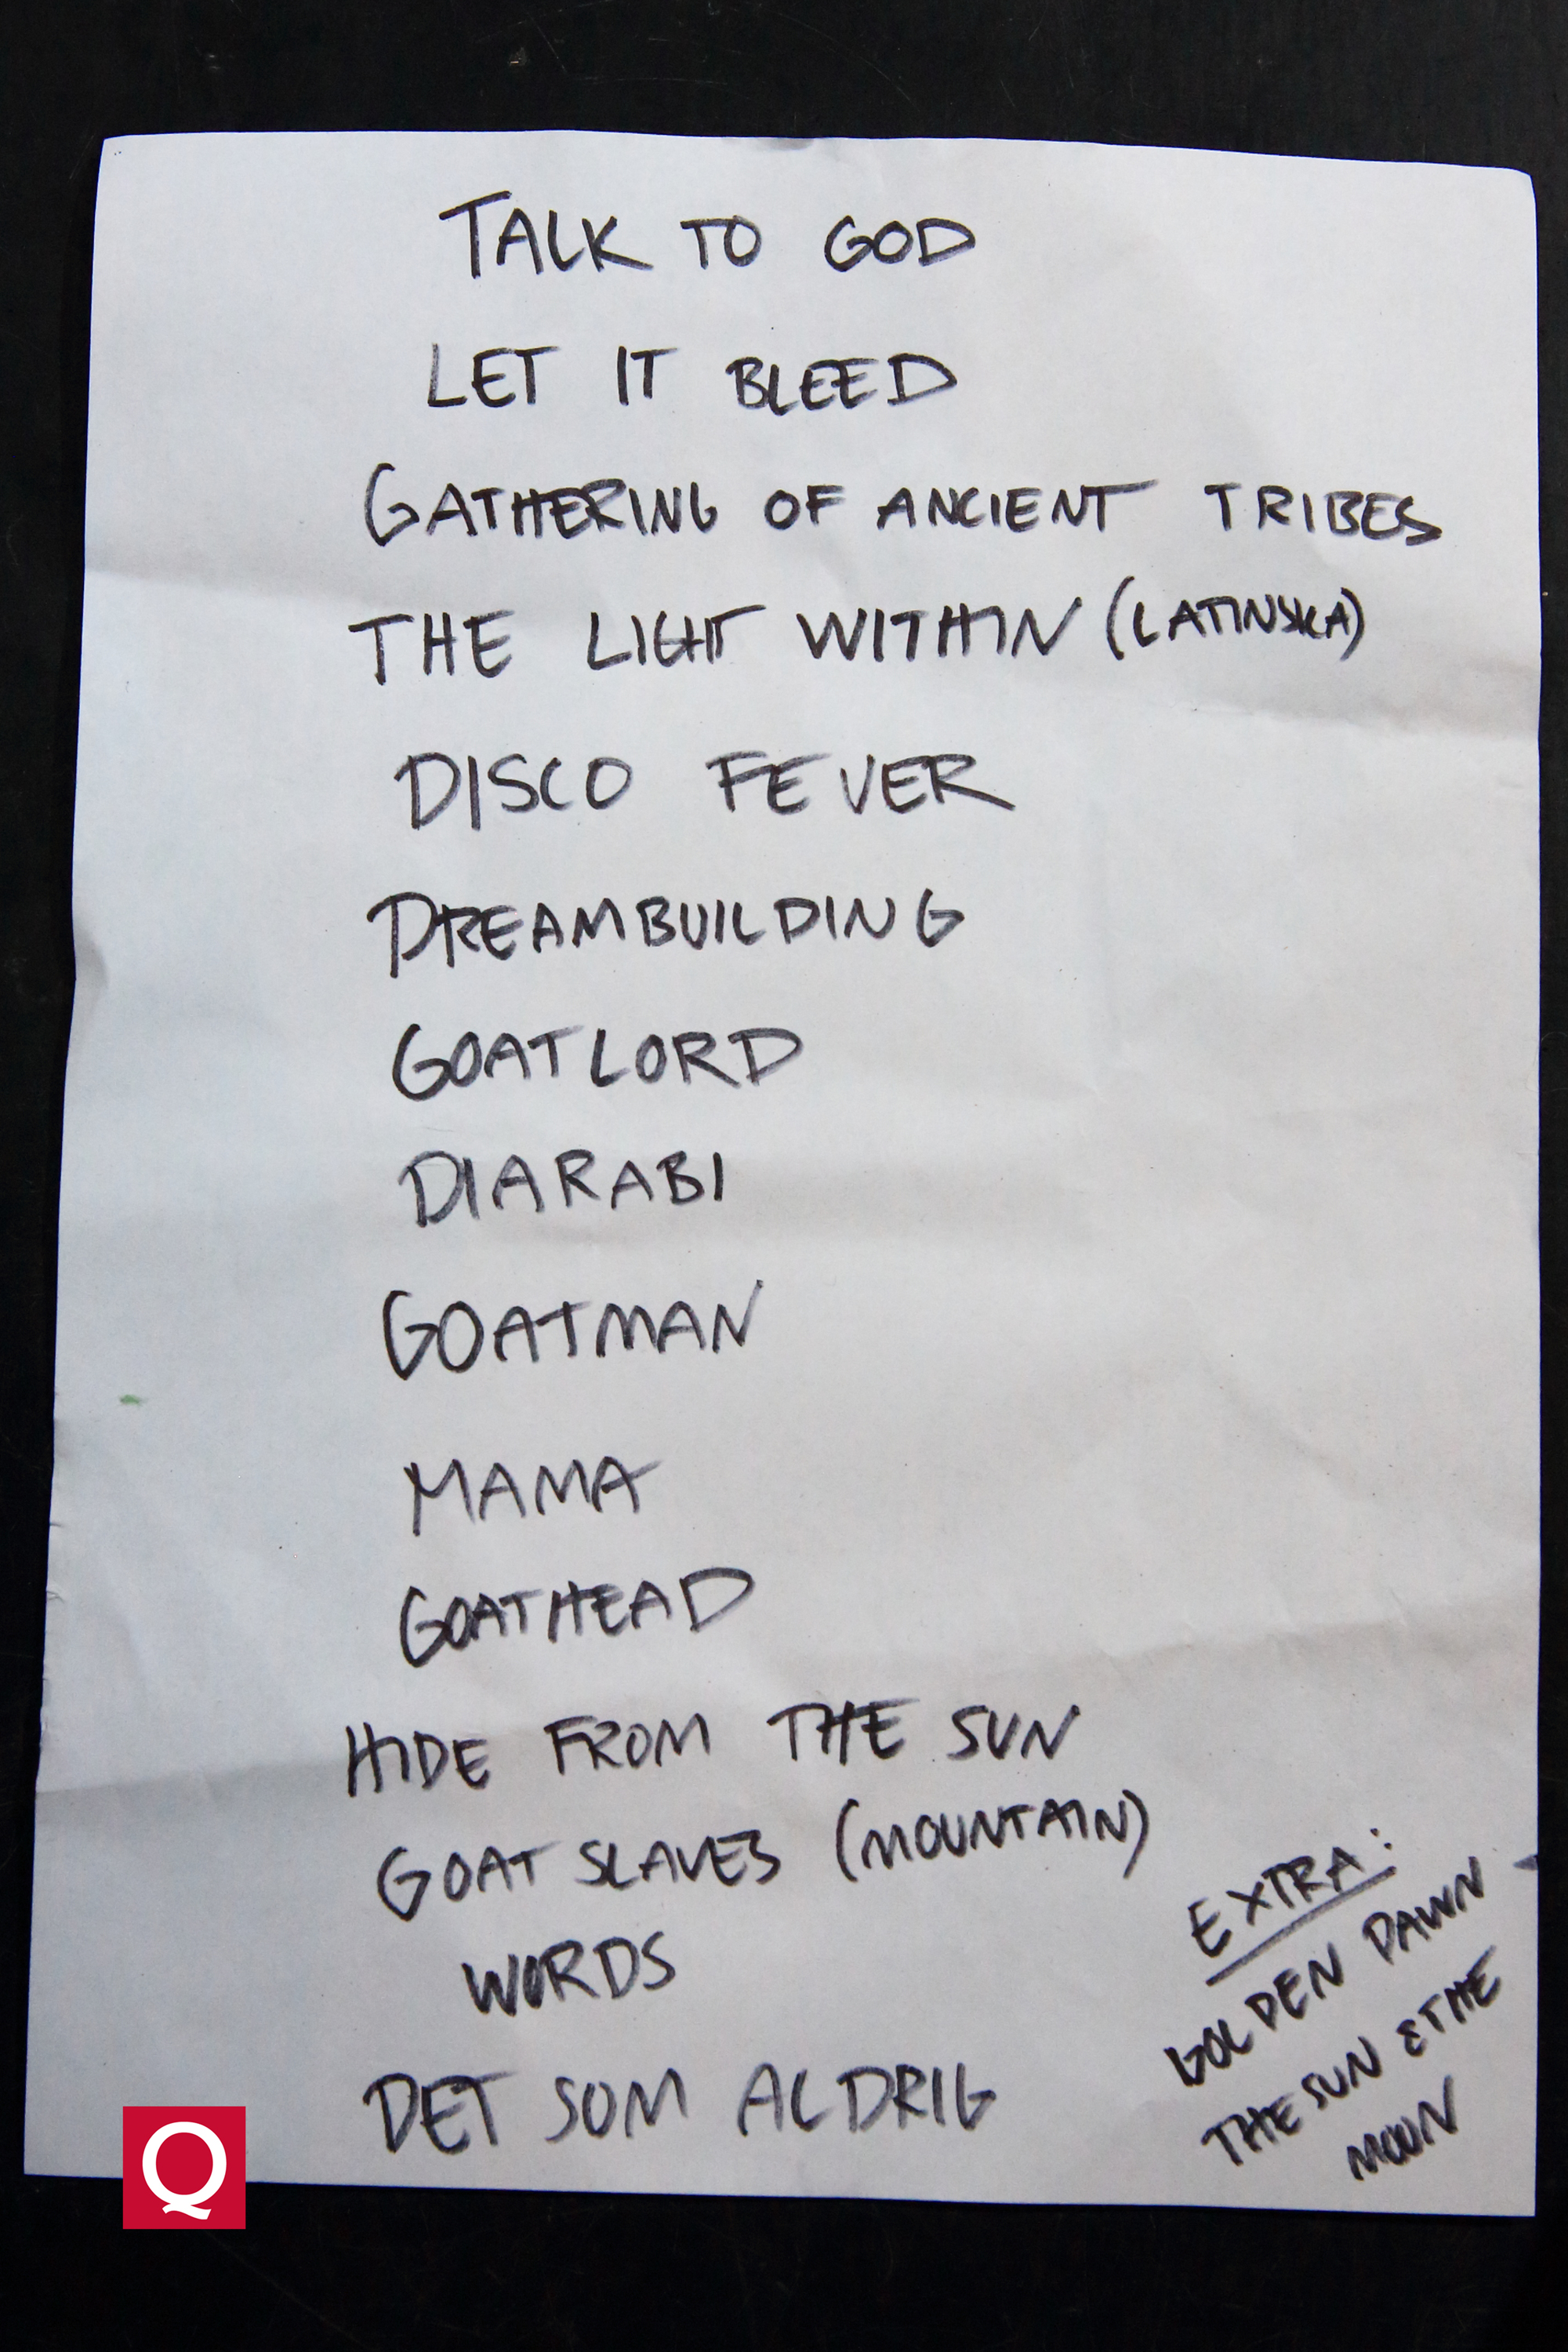 TALK TO GOD
LET IT BLEED
GATHERING OF ANCIENT TRIBES
THE LIGHT WITHIN (LATINSKA)
DISCO FEVER
DREAMBUILDING
GOATLORD
DIARABI
GOATMAN
MAMA
GOATHEAD
HIDE FROM THE SUN
GOAT SLAVES (MOUNTAIN)
WORDS
DET SOM ALDRIG
EXTRA:
GOLDEN DAWN
THE SUN & THE
MOON
Q